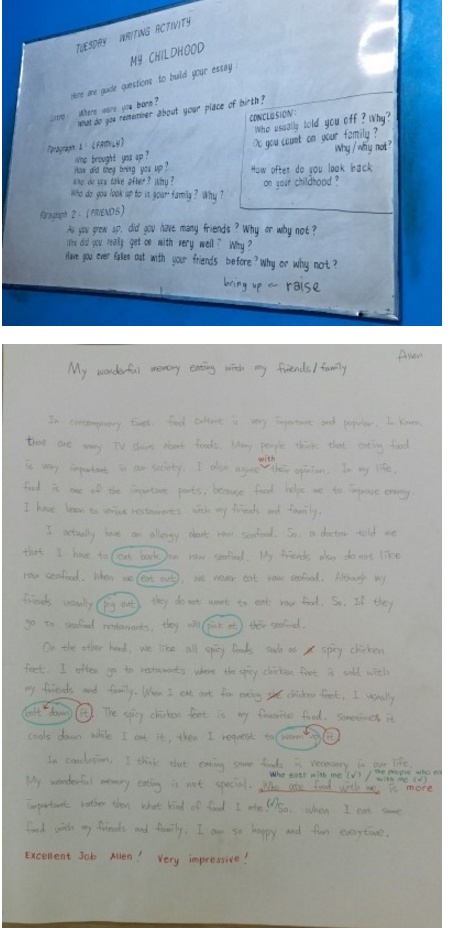 TUESDAY WRITING ACTIVITY
MY CHILDHOOD
Here are guide questions to build your essay
Intro: Where were you born?
What do you remember about your place of birth?
Paragraph 1: (FAMILY)
Who brought you up?
How did they bring you up?
Who do you take after? Why?
Who do you look up to in your family? Why?
Paragraph 2: (FRIENDS)
As you grew up, did you have many friends? Why or why not?
Who did you really get on with very well? Why?
Have you ever fallen out with your friends before? Why or why not?
bring up ~ raise
CONCLUSION:
Who usually told you off? Why?
Do you count on your family?
Why/why not?
How often do you look back
on your childhood?
Allen
My wonderful memory eating with my friends/family
In contemporary times, food culture is very important and popular. In Korea,
there are many TV shows about foods. Many people think that eating food
with
is very important in our society. I also agree their opinion. In my life,
food is one of the important parts, because food helps me to improve energy.
I have been to various restaurants with my friends and family.
I actually have an allergy about raw seafood. So, a doctor told me
that I have to cut back on raw seafood. My friends also do not like
raw seafood. When we eat out, we never eat raw seafood. Although my
friends usually pig out, they do not want to eat raw food. So, If they
go to seafood restaurants, they will pick at their seafood.
On the other hand, we like all spicy foods such as spicy chicken
feet. I often go to restaurants where the spicy chicken feet is sold with
my friends and family. When I eat out for eating chicken feet, I usually
it. The spicy chicken feet is my favorite food. Sometimes it
cools down while I eat it, then I request to warm up it.
In conclusion, I think that eating some foods is necessary in our life.
Who eats with me (✓) / the people who eat
with me (✓)
My wonderful memory eating is not special. Who ate food with me is more
important rather than what kind of food I ate. (✓) So, when I eat some
food with my friends and family, I am so happy and fun everytime.
Excellent Job Allen! Very impressive!